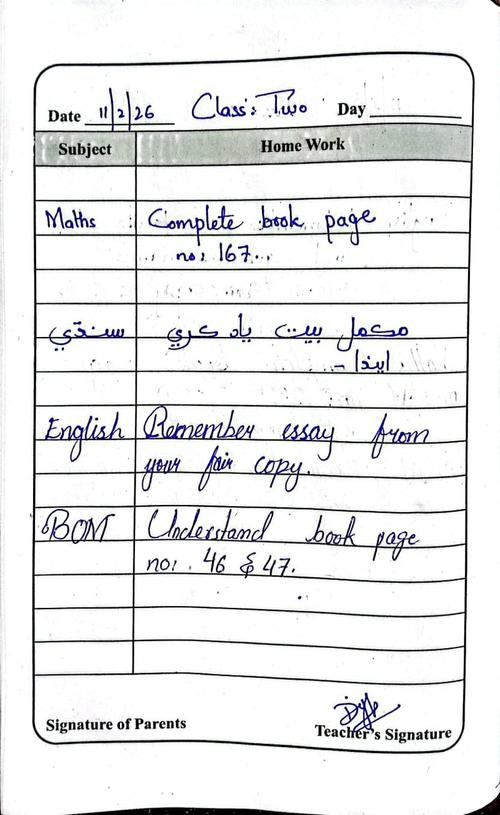 Date 11/2/26 Class: Two Day
Subject Home Work
Maths Complete book page
no: 167.
سنڌي مڪمل بيت ياد ڪري
ايندا -
English Remember essay from
your fair copy.
BOM Understand book page
no: 46 & 47.
Signature of Parents Teacher's Signature